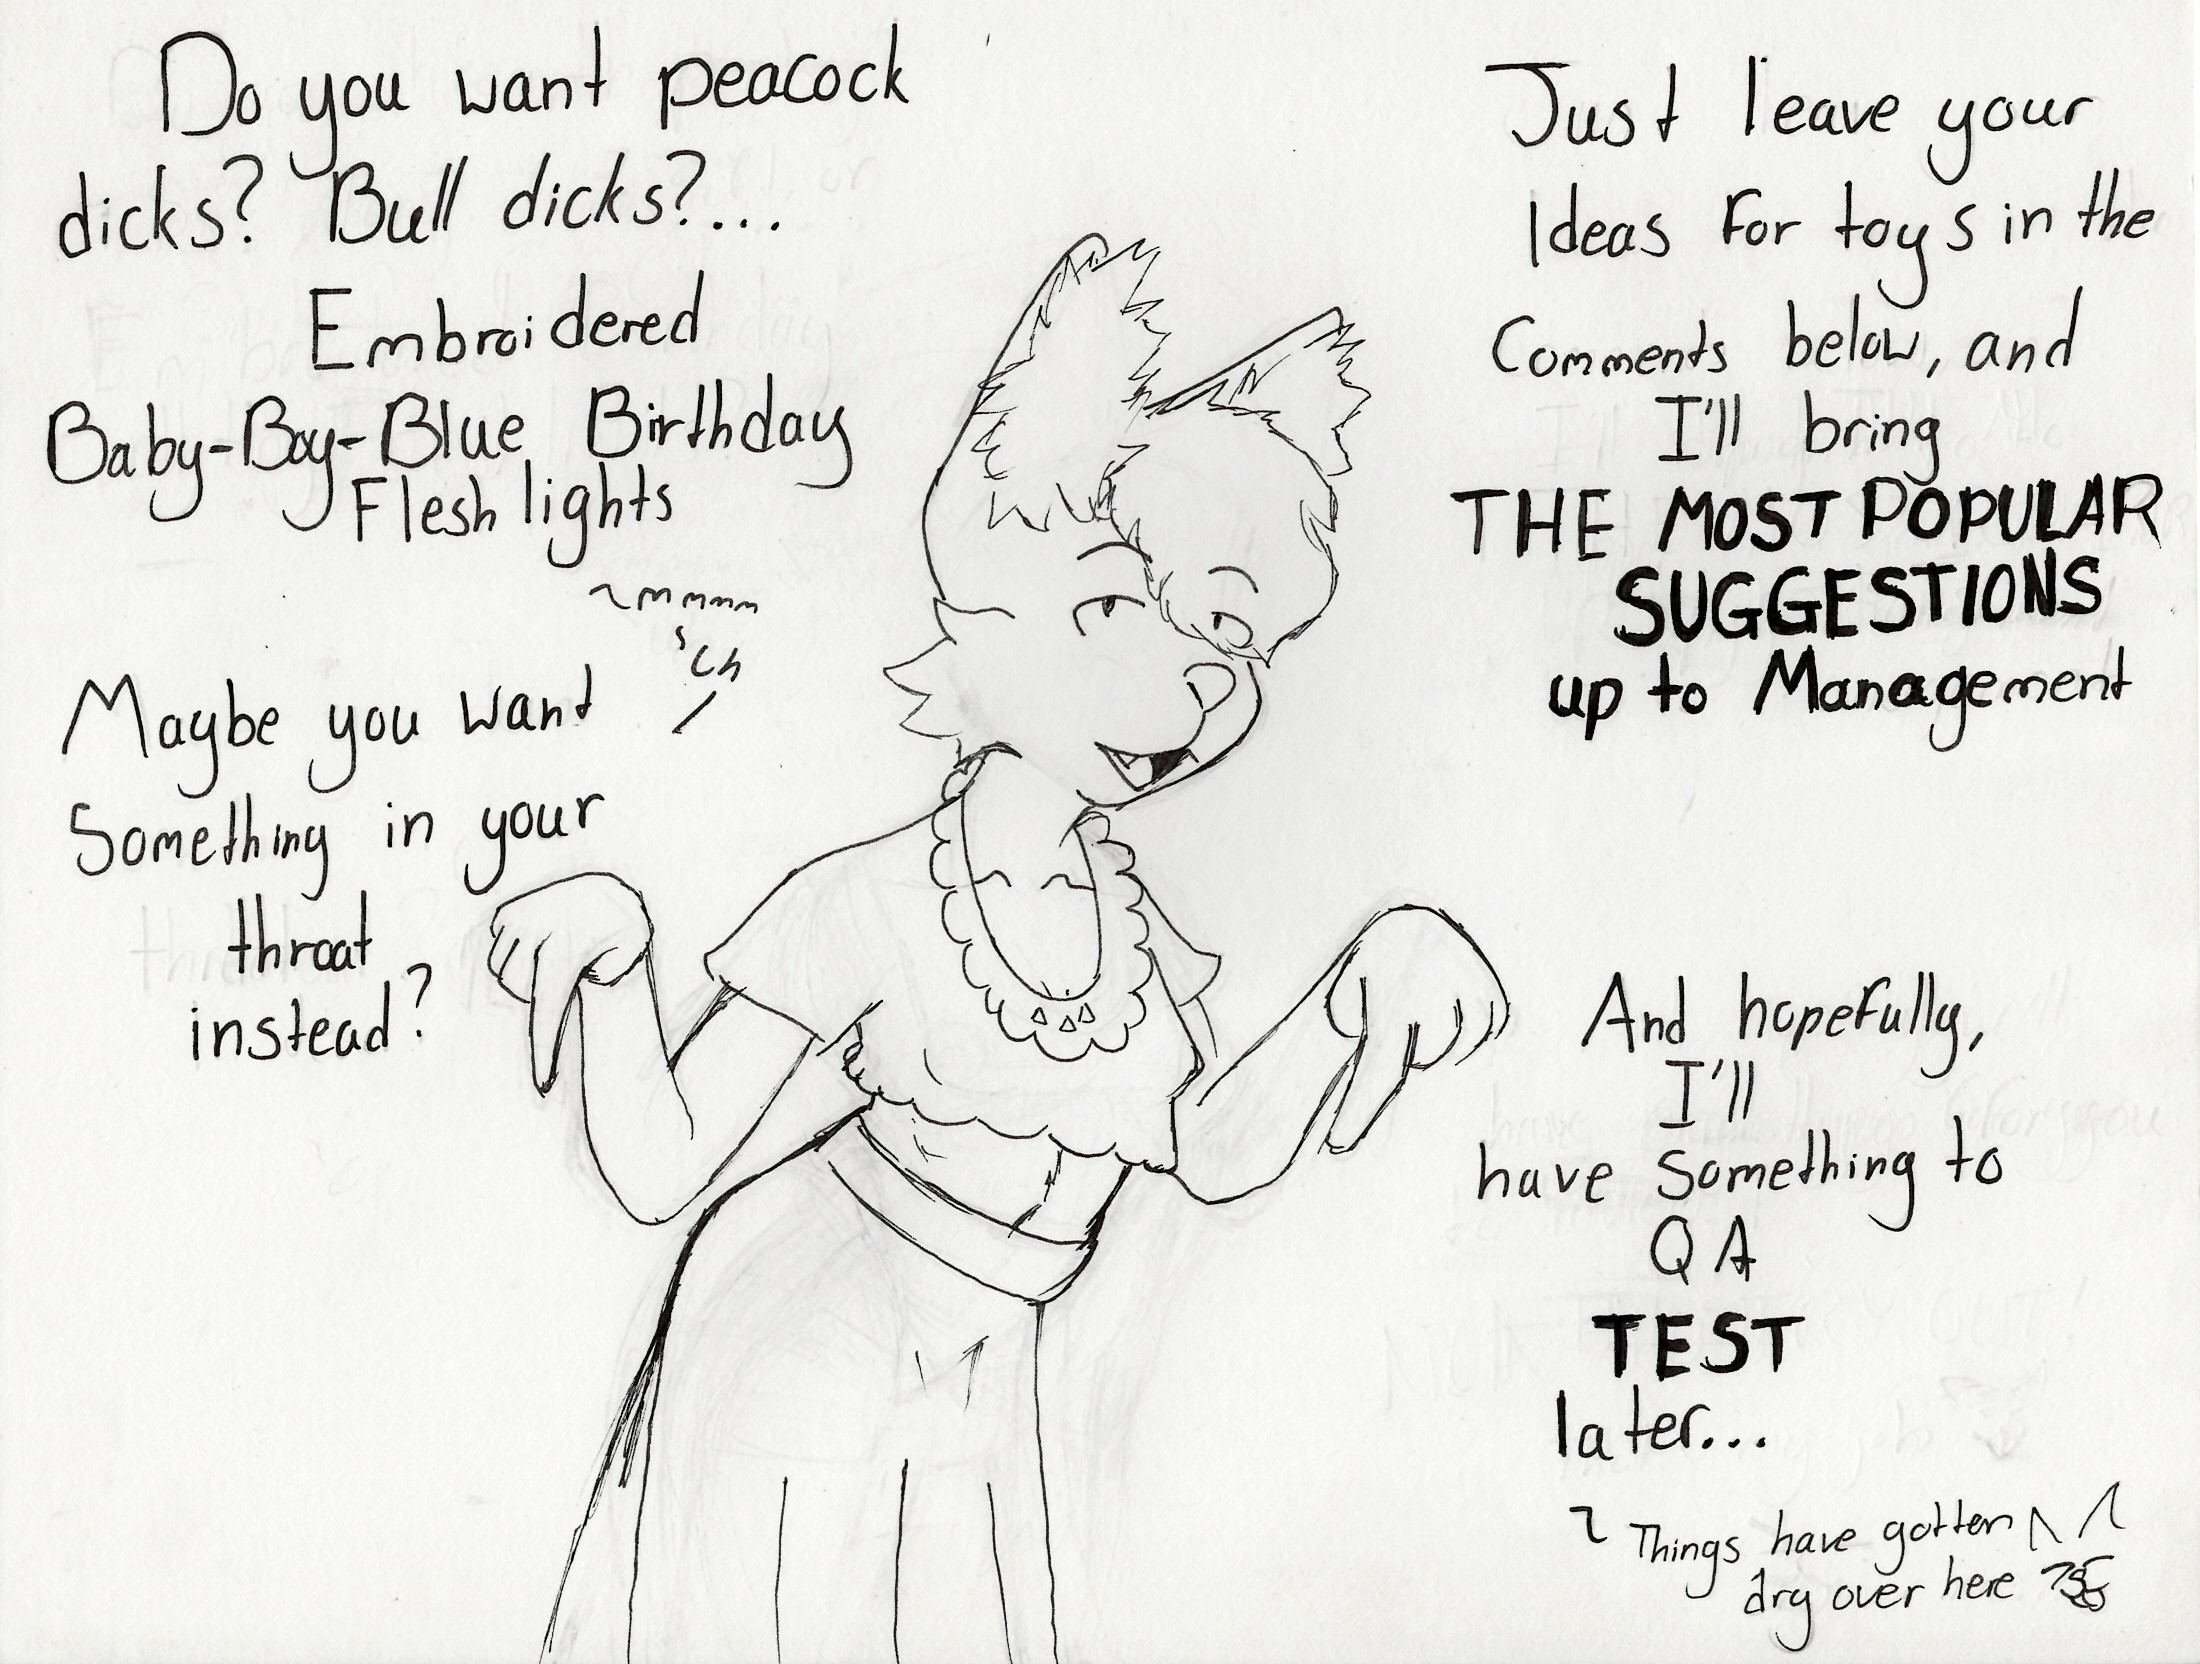 Do you want peacock
dicks? Bull dicks?...
Embroidered
Baby-Boy-Blue Birthday
Fleshlights
~mmmm
'ch
Maybe you want
Something in your
throat
instead?
Just leave your
Ideas For toys in the
Comments below, and
I'll bring
THE MOST POPULAR
SUGGESTIONS
up to Management
And hopefully,
I'll
have something to
QA
TEST
later...
~ Things have gotten
dry over here